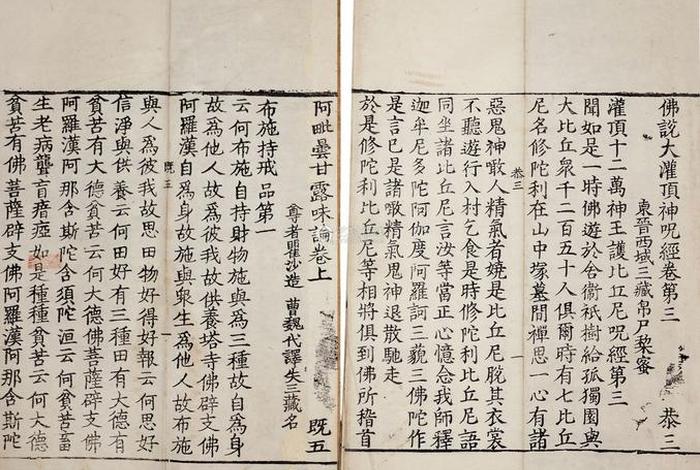 佛說大灌頂神呪經卷第三 恭三
東晉西域三藏帛尸棃蜜
灌頂十二萬神王護比丘尼呪經第三
聞如是一時佛遊於舍衞祇樹給孤獨園與
大比丘衆千二百五十人俱爾時有七比丘
尼名修陀利在山中塚墓間禪思一心有諸
惡鬼神噉人精氣者嬈是比丘尼脫其衣裳
不聽遊行入村乞食是時修陀利比丘尼語
同坐諸比丘尼言汝等當正心憶念我師釋
迦牟尼多陀阿伽度阿羅訶三藐三佛陀作
是言已是諸噉精氣鬼神退散馳走
於是修陀利比丘尼等相將俱到佛所稽首
恭三
阿毗曇甘露味論卷上 既五
尊者瞿沙造 曹魏代譯失三藏名
布施持戒品第一
云何布施自持財物施與爲三種故自爲身
故爲他人故爲彼我故供養塔寺佛辟支佛
阿羅漢自爲身故施與衆生爲他人故布施
與人爲彼我故思田物好得好報云何思好
信淨與供養云何田好有三種田有大德有
貧苦有大德貧苦云何大德佛菩薩辟支佛
阿羅漢阿那含斯陀含須陀洹云何貧苦畜
生老病聾盲瘖瘂如是種種貧苦云何大德
貧苦有佛菩薩辟支佛阿羅漢阿那含斯陀
既三